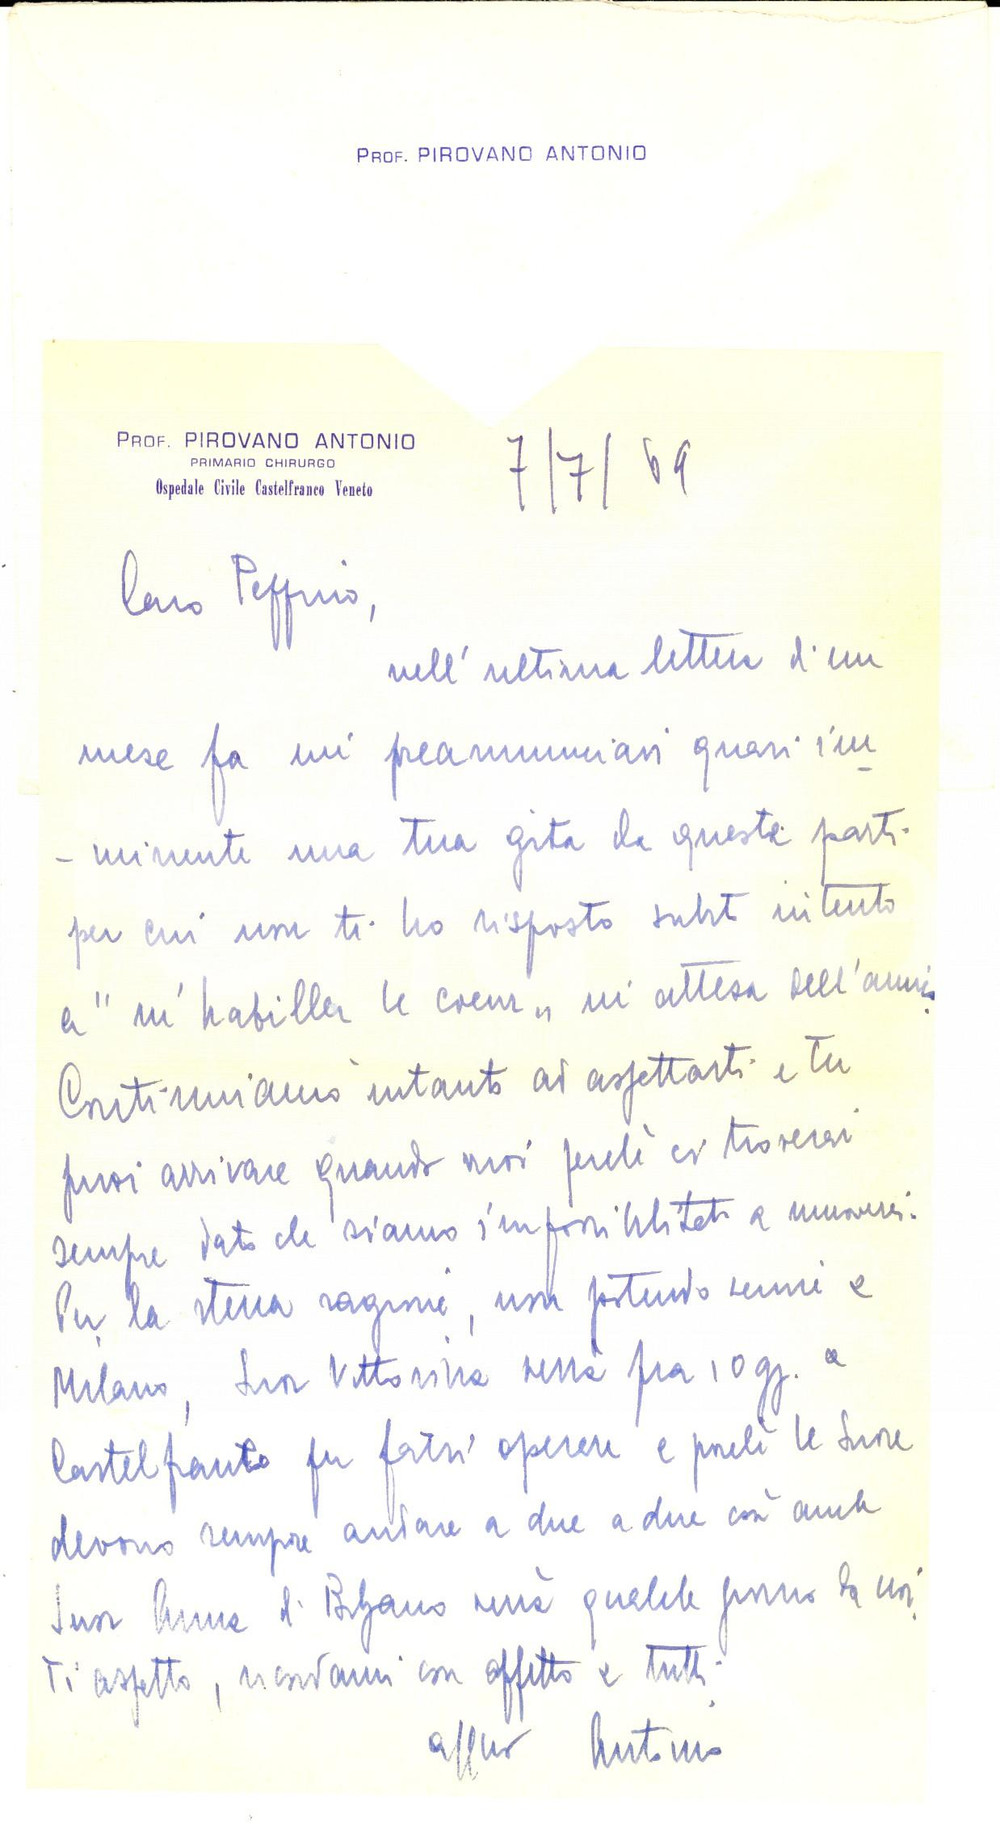 PROF. PIROVANO ANTONIO
PROF. PIROVANO ANTONIO
PRIMARIO CHIRURGO
Ospedale Civile Castelfranco Veneto
7/7/69
Caro Peppino,
nell'ultima lettera di un
mese fa mi preannunciavi quasi im
- minente una tua gita da queste parti
per cui non ti ho risposto subito intento
a "m'habiller le coeur" in attesa dell'amico.
Continuiamo intanto ad aspettarti e tu
puoi arrivare quando vuoi perchè ci troverai
sempre dato che siamo impossibilitati a muoverci.
Per la stessa ragione, non potendo venire a
Milano, Suor Vittorina verrà fra 10 gg. a
Castelfranco per farsi operare e poichè le Suore
devono sempre andare a due a due così anche
Suor Anna di Bolzano verrà qualche giorno da noi.
Ti aspetto, ricordami con affetto a tutti.
aff.mo Antonio